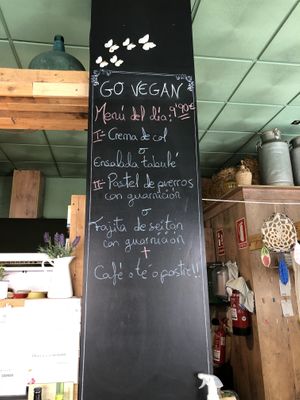 GO VEGAN
Menú del día: 9'90€
I= Crema de col
o
Ensalada tabulé
II= Pastel de puerros
con guarnición
o
Fajita de seitan
con guarnición
+
Café o te o postre!!